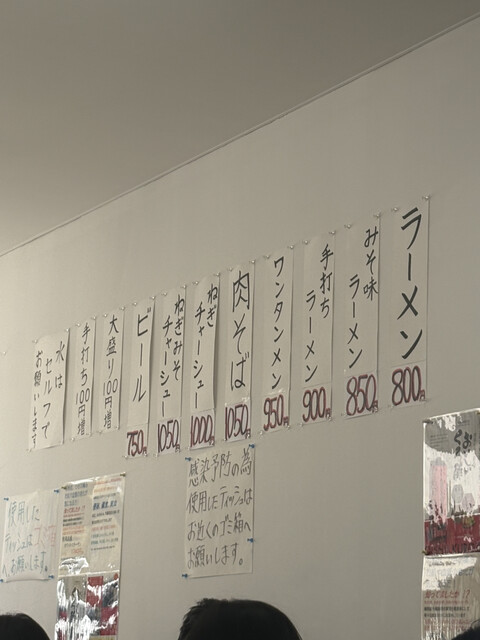 ラーメン
800円
みそ味
ラーメン
850円
手打ち
ラーメン
900円
ワンタンメン
950円
肉そば
1050円
ねぎ
チャーシュー
1000円
ねぎみそ
チャーシュー
1050円
ビール
750円
大盛り100円増
手打ち100円増
水は
セルフで
お願いします
感染予防の為
使用したティッシュは
お近くのゴミ箱へ
お願いします。
使用した
ティッシュは
お願いします。